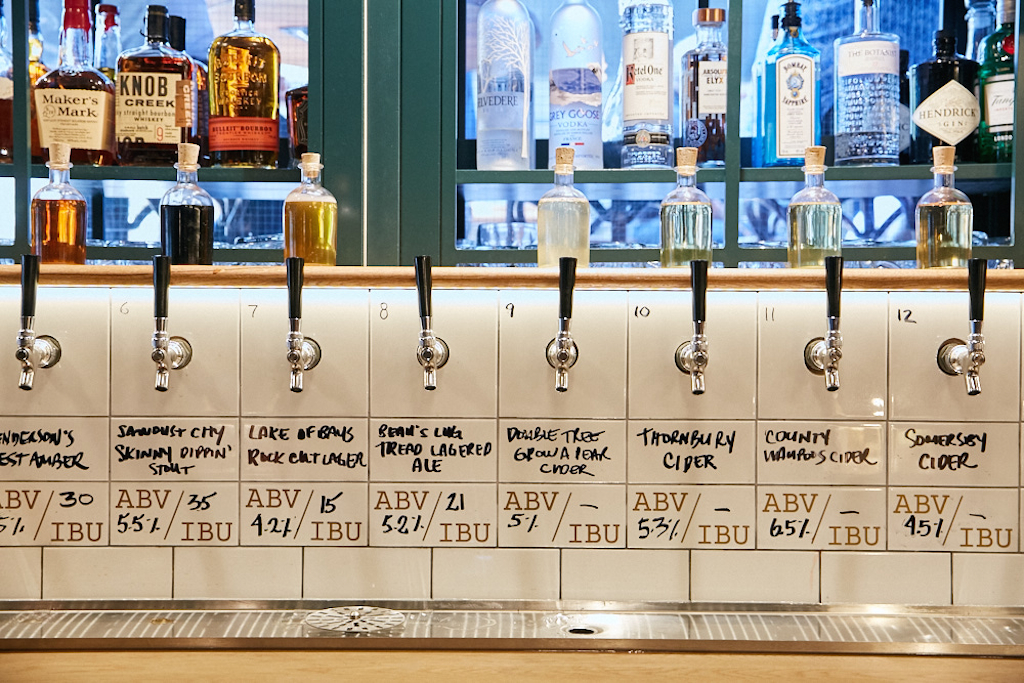 Maker's
Mark
KNOB
CREEK
WHISKEY
9
BULLEIT
BOURBON
BULLEIT BOURBON
BELVEDERE
GREY GOOSE
VODKA
Ketel One
VODKA
ABSOLUT
ELYX
BOMBAY
SAPPHIRE
THE BOTANIST
HENDRICK'S
GIN
6
7
8
9
10
11
12
ENDERSON'S
EST AMBER
SAWDUST CITY
SKINNY DIPPIN'
STOUT
LAKE OF BAYS
ROCK CUT LAGER
BEAU'S LUG
TREAD LAGERED
ALE
DOUBLE TREE
GROW A PEAR
CIDER
THORNBURY
CIDER
COUNTY
CIDER
SOMERSBY
CIDER
ABV / 30
5% IBU
ABV / 35
5.5% IBU
ABV / 15
4.2% IBU
ABV / 21
5.2% IBU
ABV / –
5% IBU
ABV / –
5.3% IBU
ABV / –
6.5% IBU
ABV / –
4.5% IBU